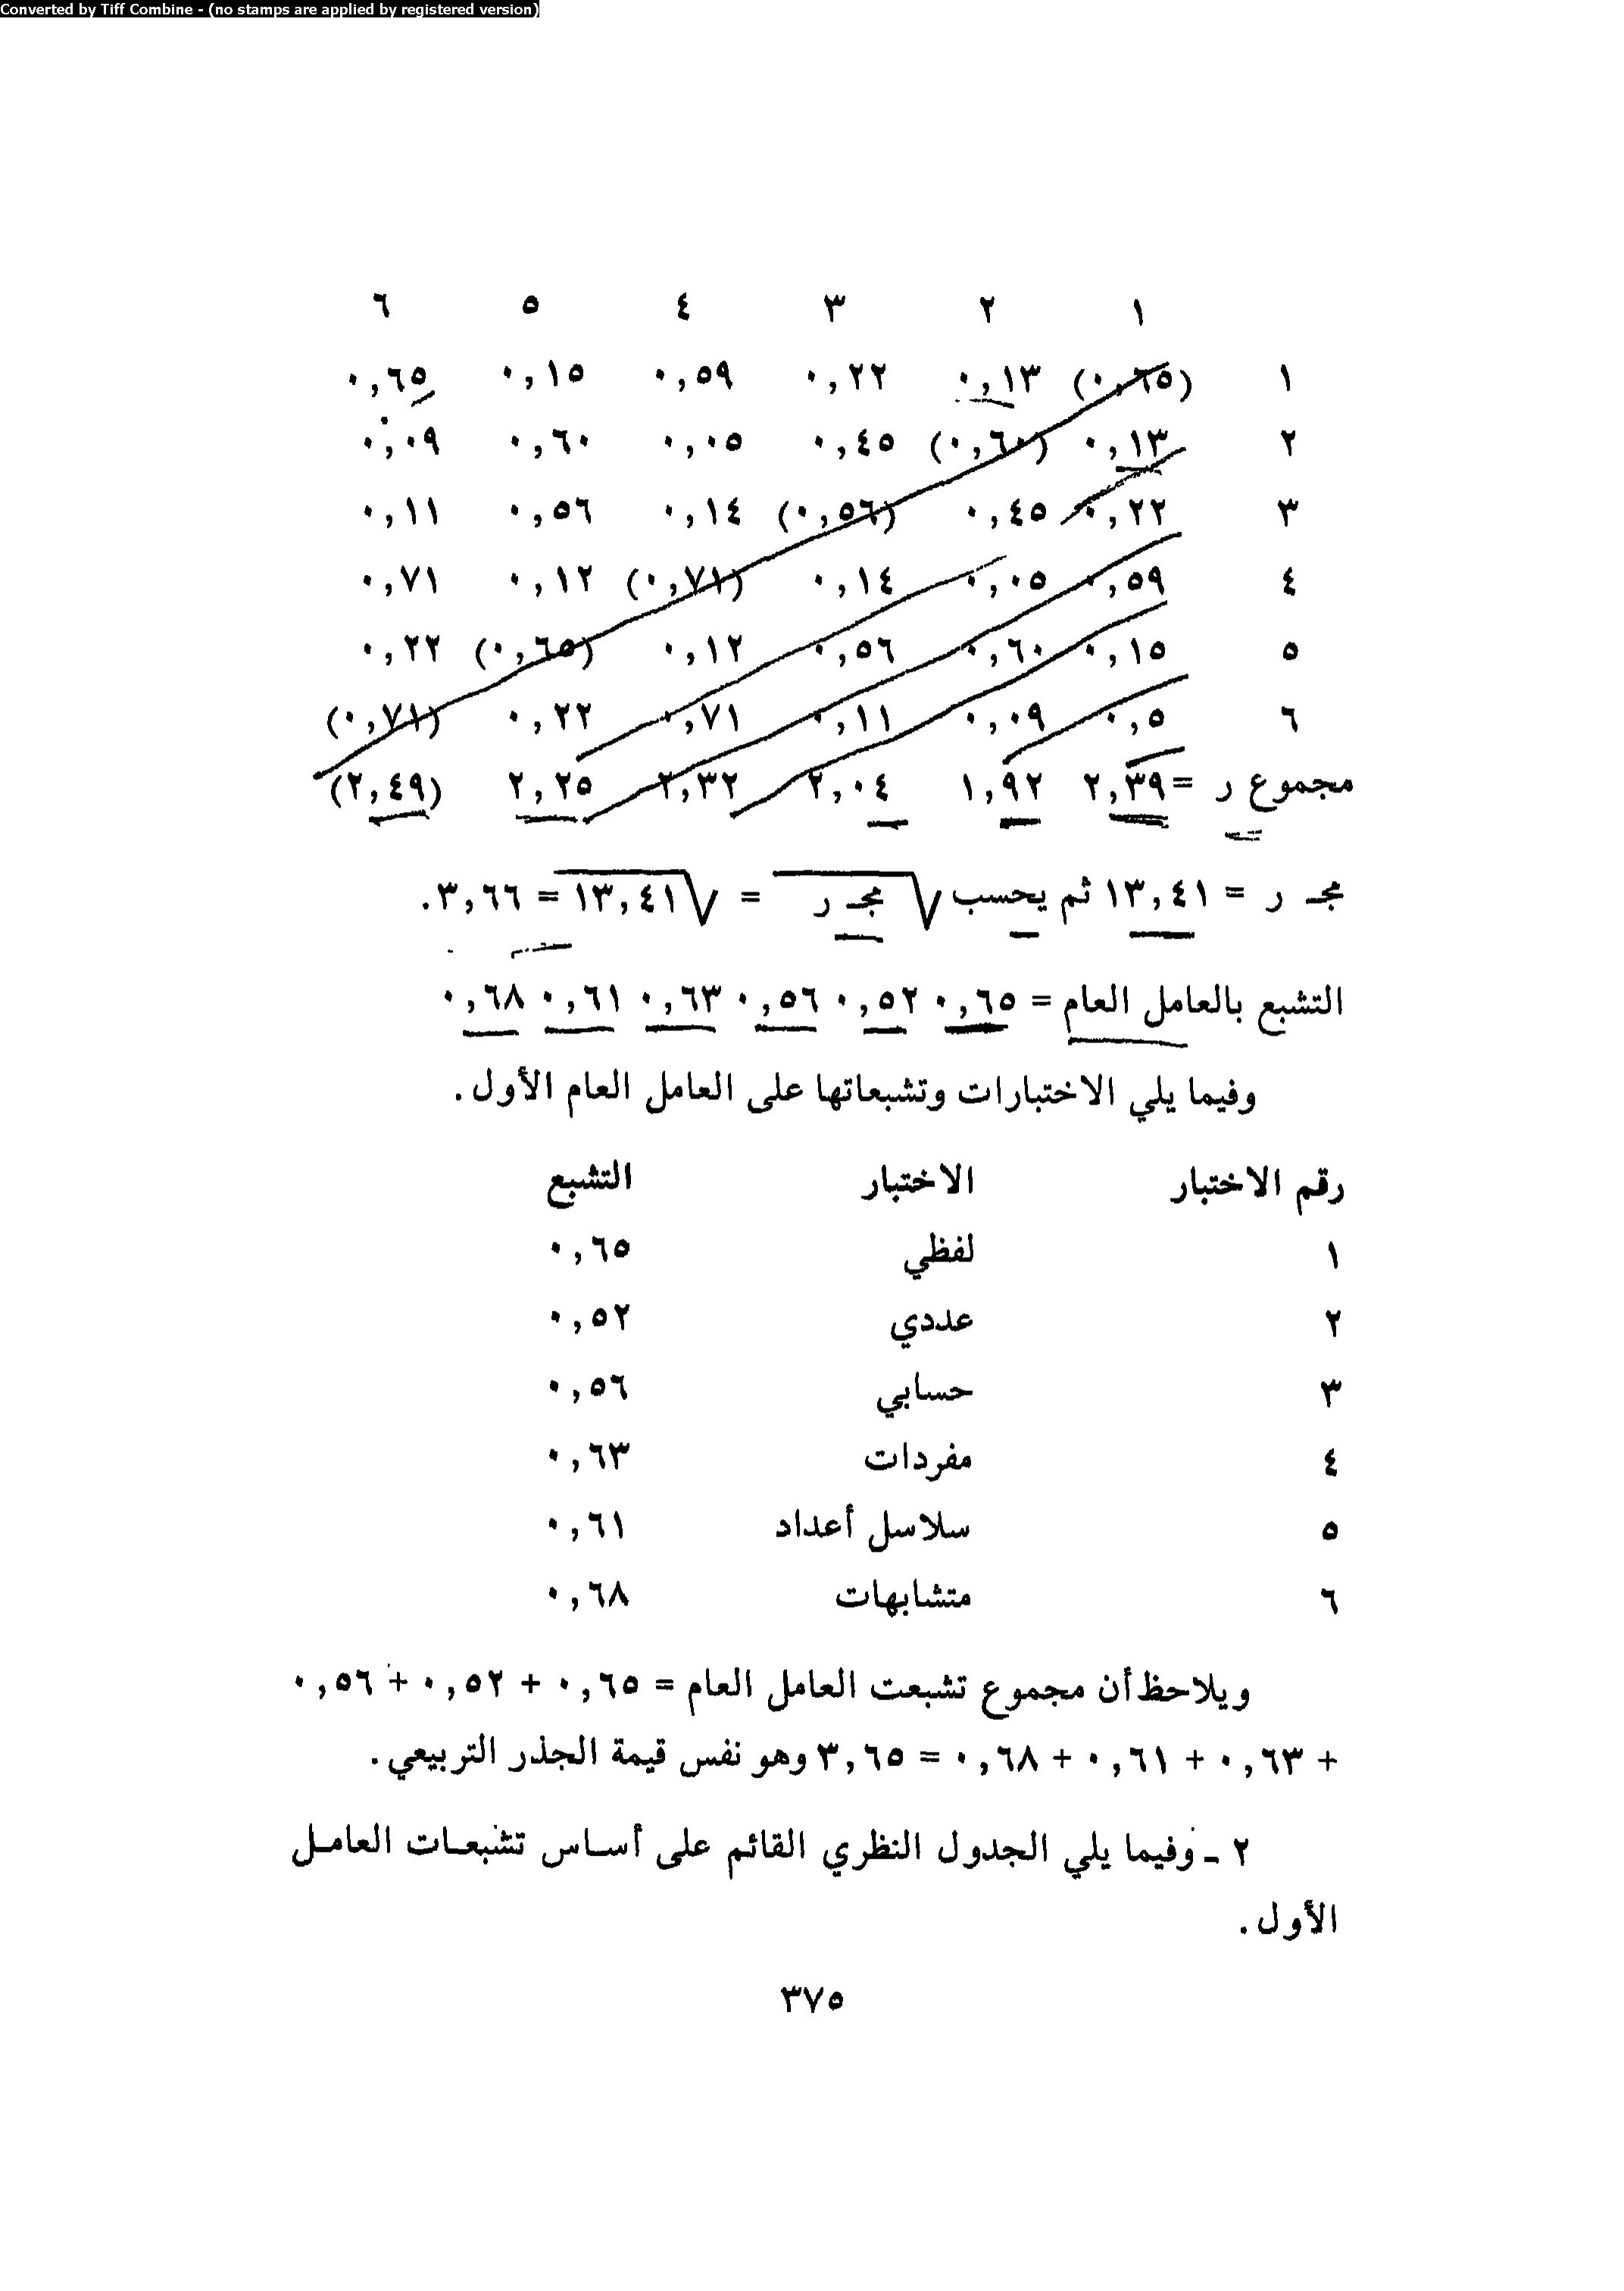 Converted by Tiff Combine - (no stamps are applied by registered version)
١ ٢ ٣ ٤ ٥ ٦
١ (٠,٦٥) ٠,١٣ ٠,٢٢ ٠,٥٩ ٠,١٥ ٠,٦٥
٢ ٠,١٣ (٠,٦٠) ٠,٤٥ ٠,٠٥ ٠,٦٠ ٠,٠٩
٣ ٠,٢٢ ٠,٤٥ (٠,٥٦) ٠,١٤ ٠,٥٦ ٠,١١
٤ ٠,٥٩ ٠,٠٥ ٠,١٤ (٠,٧١) ٠,١٢ ٠,٧١
٥ ٠,١٥ ٠,٦٠ ٠,٥٦ ٠,١٢ (٠,٦٥) ٠,٢٢
٦ ٠,٥ ٠,٠٩ ٠,١١ ٠,٧١ ٠,٢٢ (٠,٧١)
مجموع ر = ٢,٣٩ ١,٩٢ ٢,٠٤ ٢,٣٢ ٢,٢٥ (٢,٤٩)
مجـ ر = ١٣,٤١ ثم يحسب √مجـ ر = √١٣,٤١ = ٣,٦٦.
التشبع بالعامل العام = ٠,٦٥ ٠,٥٢ ٠,٥٦ ٠,٦٣ ٠,٦١ ٠,٦٨
وفيما يلي الاختبارات وتشبعاتها على العامل العام الأول.
رقم الاختبار الاختبار التشبع
١ لفظي ٠,٦٥
٢ عددي ٠,٥٢
٣ حسابي ٠,٥٦
٤ مفردات ٠,٦٣
٥ سلاسل أعداد ٠,٦١
٦ متشابهات ٠,٦٨
ويلاحظ أن مجموع تشبعت العامل العام = ٠,٦٥ + ٠,٥٢ + ٠,٥٦
+ ٠,٦٣ + ٠,٦١ + ٠,٦٨ = ٣,٦٥ وهو نفس قيمة الجذر التربيعي.
٢ ـ وفيما يلي الجدول النظري القائم على أساس تشبعات العامل
الأول.
٣٧٥